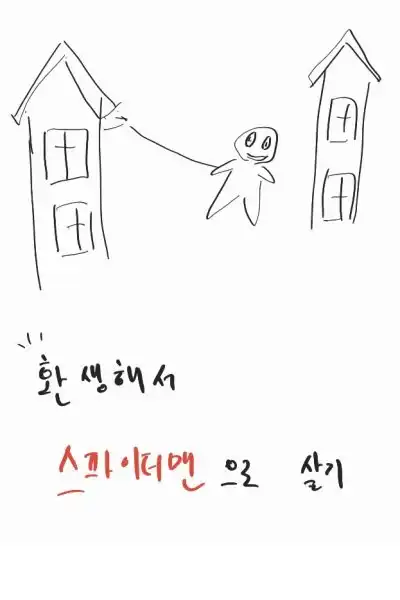 환생해서
스파이더맨으로 살기